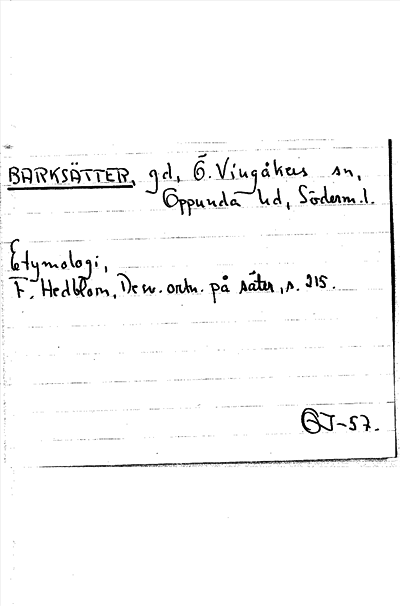 BARKSÄTTER, gd, Ö. Vingåkers sn,
Oppunda hd, Söderm.l.
Etymologi,
F. Hedblom, De sv. ortn. på säter, s. 215.
GJ-57.